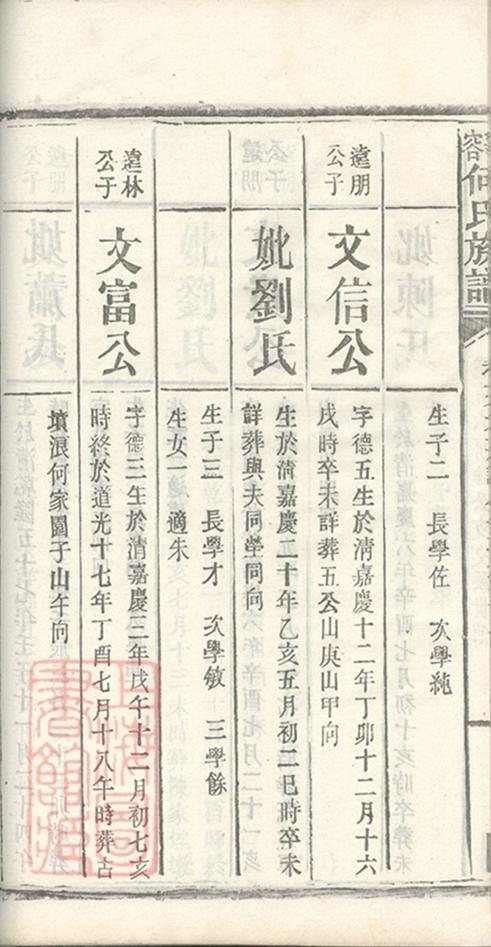 何氏族譜
生子二 長學佐 次學純
遠朋
公子
文信公
字德五生於淸嘉慶十二年丁卯十二月十六
戌時卒未詳葬五公山庚山甲向
妣劉氏
生於淸嘉慶二十年乙亥五月初二巳時卒未
詳葬與夫同塋同向
生子三 長學才 次學敏 三學餘
生女一 適朱
遠林
公子
文富公
字德三生於淸嘉慶三年戊午十二月初七亥
時終於道光十七年丁酉七月十八午時葬古
墳浪何家園子山午向